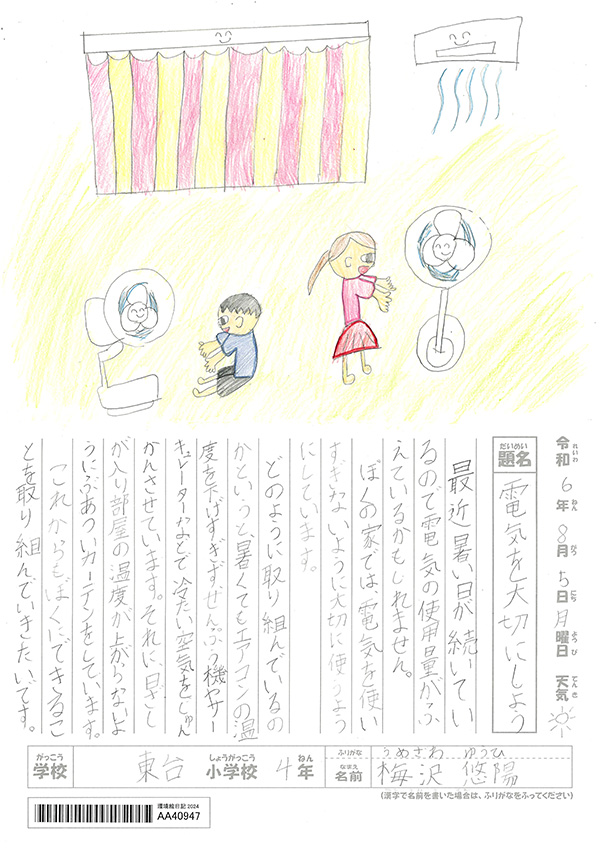 令和6年8月5日月曜日 天気
れいわ ねん がつ にち ようび てんき
だいめい
題名
電気を大切にしよう
最近暑い日が続いてい
るので電気の使用量がふ
えているかもしれません。
ぼくの家では、電気を使い
すぎないように大切に使うよう
にしています。
どのように取り組んでいるの
かというと、暑くてもエアコンの温
度を下げすぎず、せんぷう機やサー
キュレーターなどで冷たい空気をじゅん
かんさせています。それに、日ざし
が入り部屋の温度が上がらないよ
うにぶあついカーテンをしています。
これからもぼくにできるこ
とを取り組んでいきたいです。
がっこう
学校
東台
しょうがっこう
小学校
4年
ねん
ふりがな
うめざわ ゆうひ
なまえ
名前
梅沢 悠陽
(漢字で名前を書いた場合は、ふりがなをふってください)
環境絵日記2024
AA40947